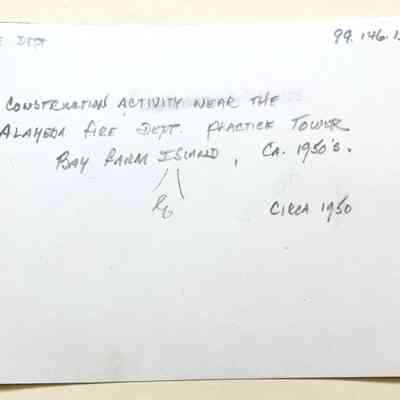 DEPT
99.146.1
CONSTRUCTION ACTIVITY NEAR THE
ALAMEDA FIRE DEPT. PRACTICE TOWER
BAY FARM ISLAND, CA. 1950'S.
CIRCA 1950